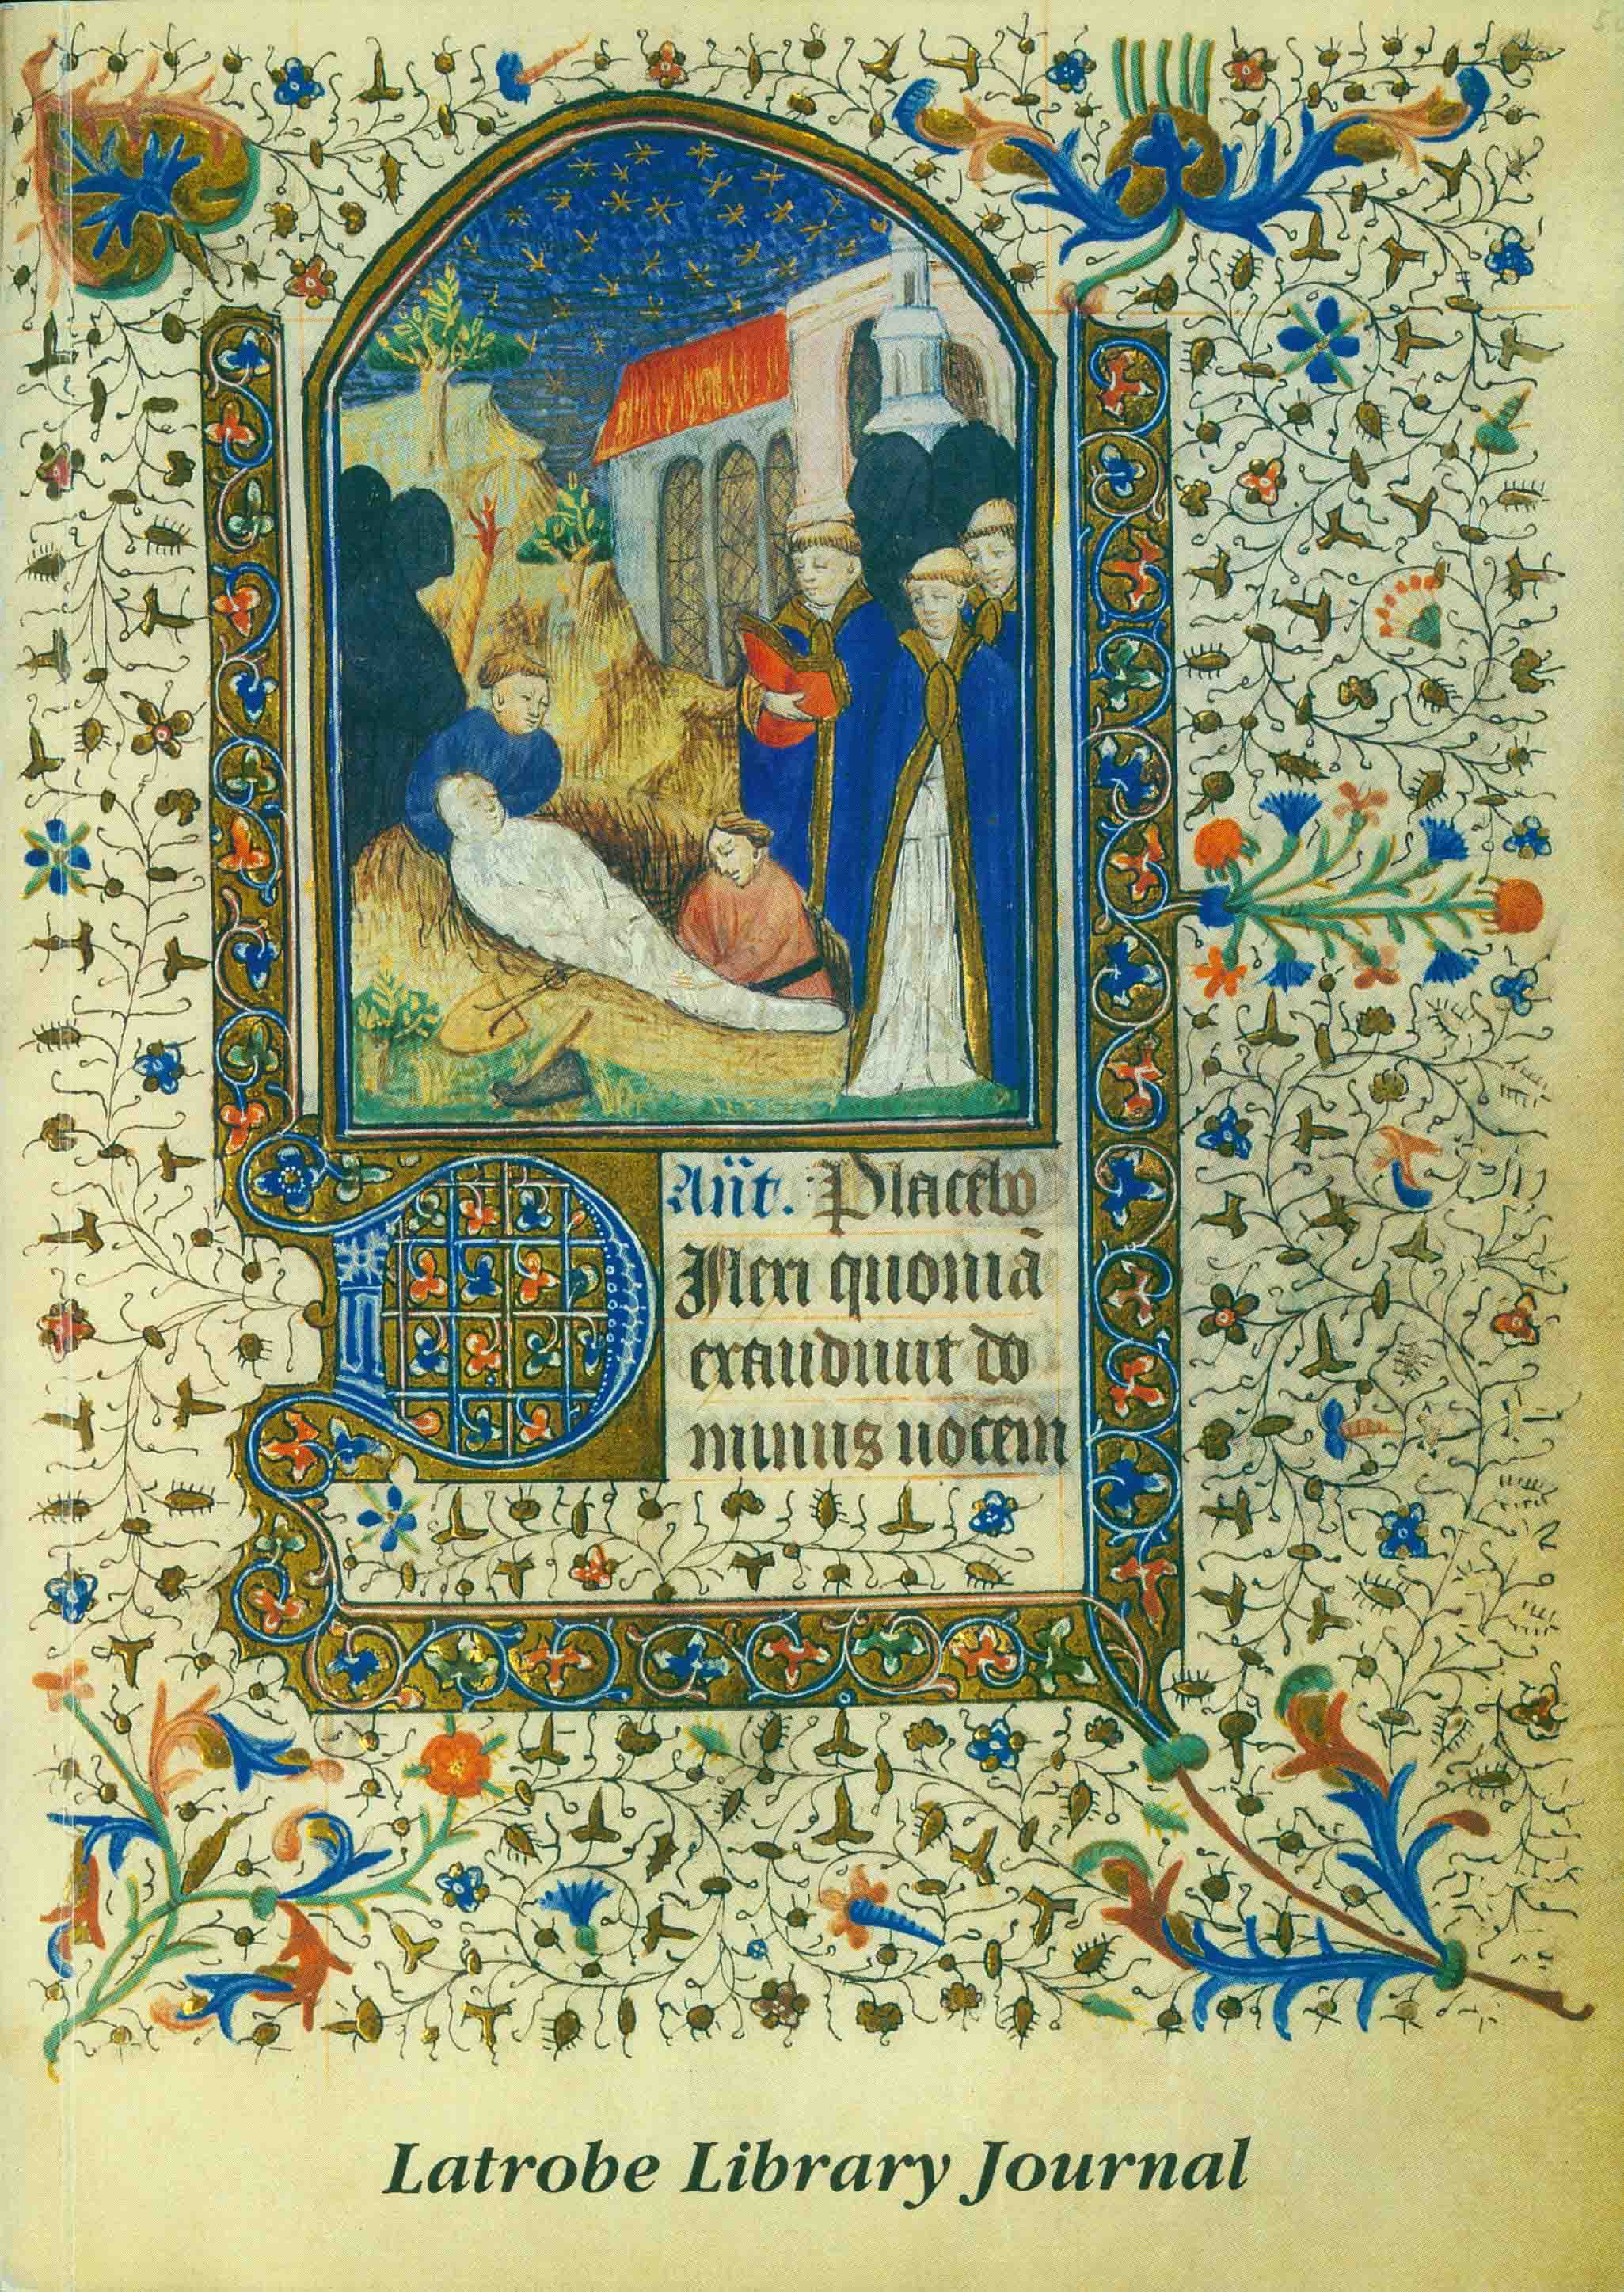 Añt. Placebo
Dilexi quoniā
exaudiuit do
minus uocem
Latrobe Library Journal